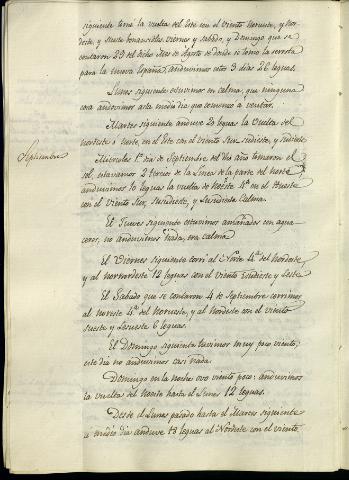 siguiente tomé la vuelta del Este con el viento Norueste, y Nor-
deste, y siendo bonancibles, viernes y sabado, y Domingo que se
contaron 29 del dicho Mes de Agosto de donde se tomo la derrota
para la nueva España, anduvimos estos 3 dias 26 leguas.
Lunes siguiente estuvimos en calma, que ninguna
cosa anduvimos asta medio dia que comenzo a ventar.
Martes siguiente anduve 20 leguas la Vuelta del
nordeste y norte, en el Este con el viento Sur, sudueste, y sudeste
Septiembre
Miercoles 1º dia de Septiembre del dho año tomaron el
sol, estavamos 2 tercios de la Linea de la parte del Norte
anduvimos 10 leguas la vuelta de Norte 4ª en el Nueste
con el viento Sur, Surdueste, y Surdueste Calma.
El Jueves siguiente estuvimos amainados con agua-
ceros, no anduvimos nada, era calma
El Viernes siguiente corri al Norte 4ª del Nordeste
y al nornordeste 12 leguas con el viento Essudueste y Leste
El Sabado que se contaron 4 de Septiembre corrimos
al noreste 4ª del Norueste, y al Nordeste con el viento
Sueste y Lesueste 6 leguas.
El Domingo siguiente tuvimos muy poco viento,
este dia no anduvimos casi nada.
Domingo en la noche ovo viento poco: anduvimos
la vuelta del norte hasta el Lunes 12 leguas.
Desde el Lunes pasado hasta el Martes siguiente
a medio dia anduve 18 leguas al Nordeste con el viento